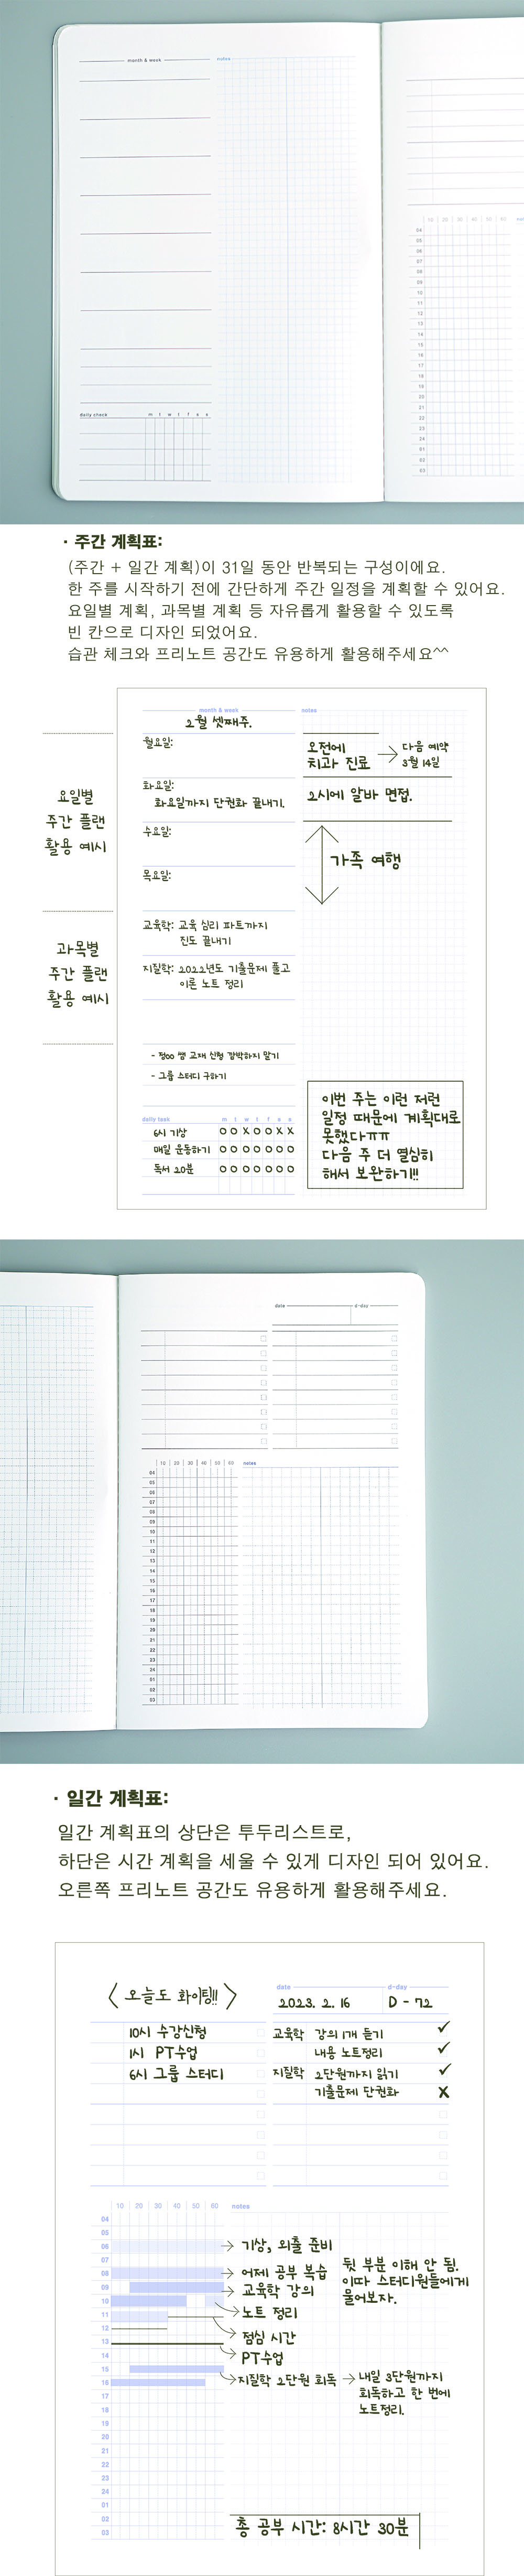 month & week
notes
daily check
m t w t f s s
10 20 30 40 50 60
04
05
06
07
08
09
10
11
12
13
14
15
16
17
18
19
20
21
22
23
24
01
02
03
· 주간 계획표:
(주간 + 일간 계획)이 31일 동안 반복되는 구성이에요.
한 주를 시작하기 전에 간단하게 주간 일정을 계획할 수 있어요.
요일별 계획, 과목별 계획 등 자유롭게 활용할 수 있도록
빈 칸으로 디자인 되었어요.
습관 체크와 프리노트 공간도 유용하게 활용해주세요^^
month & week
notes
2월 셋째주.
요일별
주간 플랜
활용 예시
월요일:
오전에
치과 진료
다음 예약
3월 14일
화요일:
화요일까지 단권화 끝내기.
2시에 알바 면접.
수요일:
가족 여행
목요일:
과목별
주간 플랜
활용 예시
교육학: 교육 심리 파트까지
진도 끝내기
지질학: 2022년도 기출문제 풀고
이론 노트 정리
- 정00 쌤 교재 신청 깜박하지 말기
- 그룹 스터디 구하기
daily task
m t w t f s s
6시 기상 O O X O O X X
매일 운동하기 O O O O O O O
독서 20분 O O O O O O O
이번 주는 이런 저런
일정 때문에 계획대로
못했다ㅠㅠ
다음 주 더 열심히
해서 보완하기!!
date
d-day
10 20 30 40 50 60
notes
04
05
06
07
08
09
10
11
12
13
14
15
16
17
18
19
20
21
22
23
24
01
02
03
· 일간 계획표:
일간 계획표의 상단은 투두리스트로,
하단은 시간 계획을 세울 수 있게 디자인 되어 있어요.
오른쪽 프리노트 공간도 유용하게 활용해주세요.
< 오늘도 화이팅!! >
date
d-day
2023. 2. 16
D - 72
10시 수강신청
1시 PT수업
6시 그룹 스터디
교육학 강의 1개 듣기
내용 노트정리
지질학 2단원까지 읽기
기출문제 단권화
10 20 30 40 50 60
notes
04
05
06
07
08
09
10
11
12
13
14
15
16
17
18
19
20
21
22
23
24
01
02
03
기상, 외출 준비
어제 공부 복습
교육학 강의
노트 정리
점심 시간
PT수업
지질학 2단원 회독
뒷 부분 이해 안 됨.
이따 스터디원들에게
물어보자.
내일 3단원까지
회독하고 한 번에
노트정리.
총 공부 시간: 8시간 30분